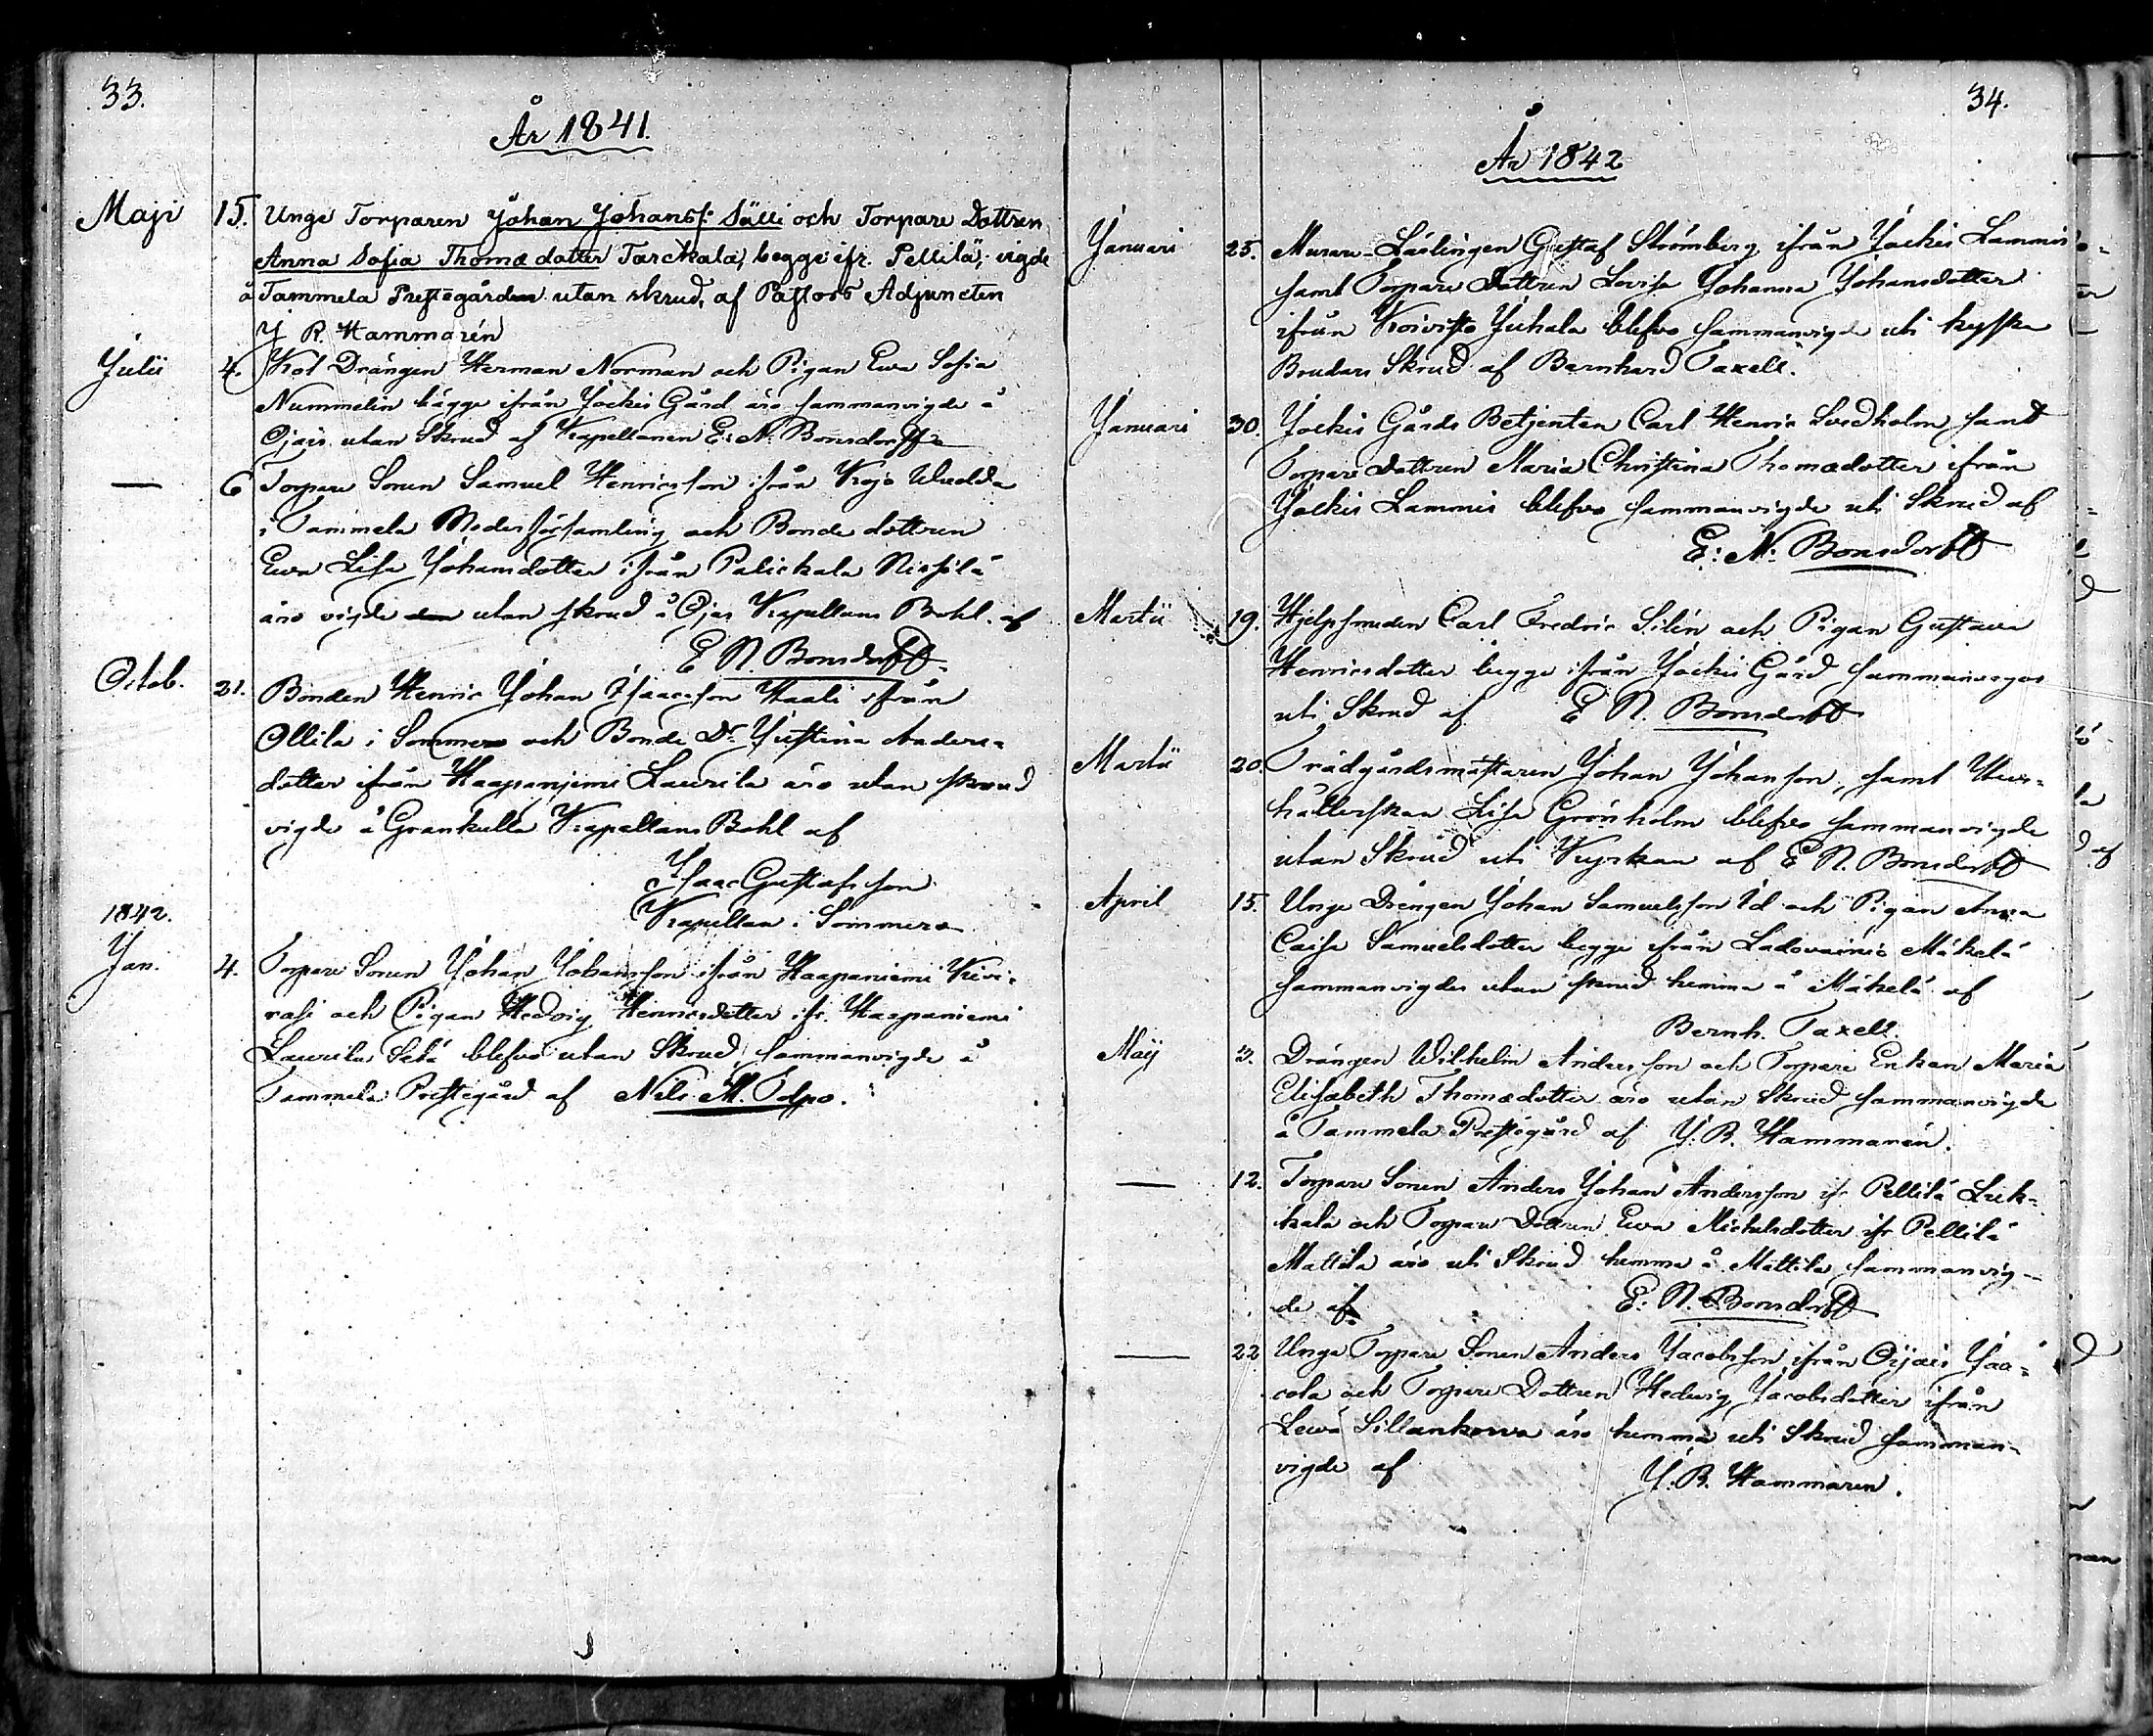 33.
År 1841.
Maji 15. Unge Torparen Johan Johanss: Sälli och Torpare Dottren
Anna Sofia Thomædotter Tarckala, begge ifr. Pellilä, vigde
å Tammela Prestegården utan skrud, af Pastors Adjuncten
J R Hammarén
Julii 4. Kol Drängen Herman Norman och Pigan Eva Sofia
Nummelin bägge ifrån Jockis Gård äro sammanvigde å
Ojais utan Skrud af Kapellanen E: N: Bonsdorff
— 6 Torpare Sonen Samuel Henricsson ifrån Kojo
i Tammela Moderförsamling och Bonde dottren
Eva Lisa Johansdotter ifrån Palickala Nissilä
äro vigde utan skrud å Ojas Kapellans Bohl. af
E N. Bonsdorff.
Octob. 21. Bonden Henric Johan Isaacsson Haali ifrån
Ollila i Sommero och Bonde Dr Justina Anders-
dotter ifrån Haapanjemi Laurila äro utan skrud
vigde å Grankulla Kapellans Bohl af
Isaac Gustafsson
Kapellan i Sommero
1842.
Jan. 4. Torpare Sonen Johan Johansson ifrån Haapaniemi Kivi-
rasi och Pigan Hedvig Henricsdotter ifr. Haapaniemi
Laurila blefvo utan Skrud sammanvigde å
Tammela Prestegård af Nils M. Tolpo.
34.
År 1842
Januari 25. Murare-Lärlingen Gustaf Strömberg ifrån Jockis Lammis
samt Torpare Dottren Lovisa Johanna Johansdotter
ifrån Koivisto Juhala blefvo sammanvigde uti kyska
Brudars Skrud af Bernhard Taxell.
Januari 30. Jockis Gårds Betjenten Carl Henric Lindholm samt
Torpare dottren Maria Christina Thomædotter ifrån
Jockis Lammis blefvo sammanvigde uti Skrud af
E: N: Bonsdorff
Martii 19. Hjelpsmeden Carl Fredric Silén och Pigan Gustava
Henricsdotter begge ifrån Jockis Gård sammanvigde
uti Skrud af E N. Bonsdorff
Martii 20. Trädgårdsmästaren Johan Johansson, samt Hus-
hållerskan Lisa Grönholm blefvo sammanvigde
utan Skrud uti Kyrkan af E N. Bonsdorff
April 15. Unge Drängen Johan Samuelsson Id och Pigan Anna
Caisa Samuelsdotter begge ifrån Ladovainio Mäkelä
sammanvigdes utan skrud hemma å Mäkelä af
Bernh. Taxell
Maij 3. Drängen Wilhelm Andersson och Torpare Enkan Maria
Elisabeth Thomædotter äro utan Skrud sammanvigde
å Tammela Prestegård af J. R. Hammarén.
— 12. Torpare Sonen Anders Johan Andersson ifr Pellilä Leik-
kala och Torpare Dottren Eva Michelsdotter ifr Pellilä
Mattila äro uti Skrud hemma å Mattila sammanvig-
de af E: N. Bonsdorff
— 22 Unge Torpare Sonen Anders Jacobsson ifrån Ojais Jaa-
cola och Torpare Dottren Hedvig Jacobsdotter ifrån
Lewä Sillankorva äro hemma uti Skrud samman-
vigde af J. R. Hammarén.